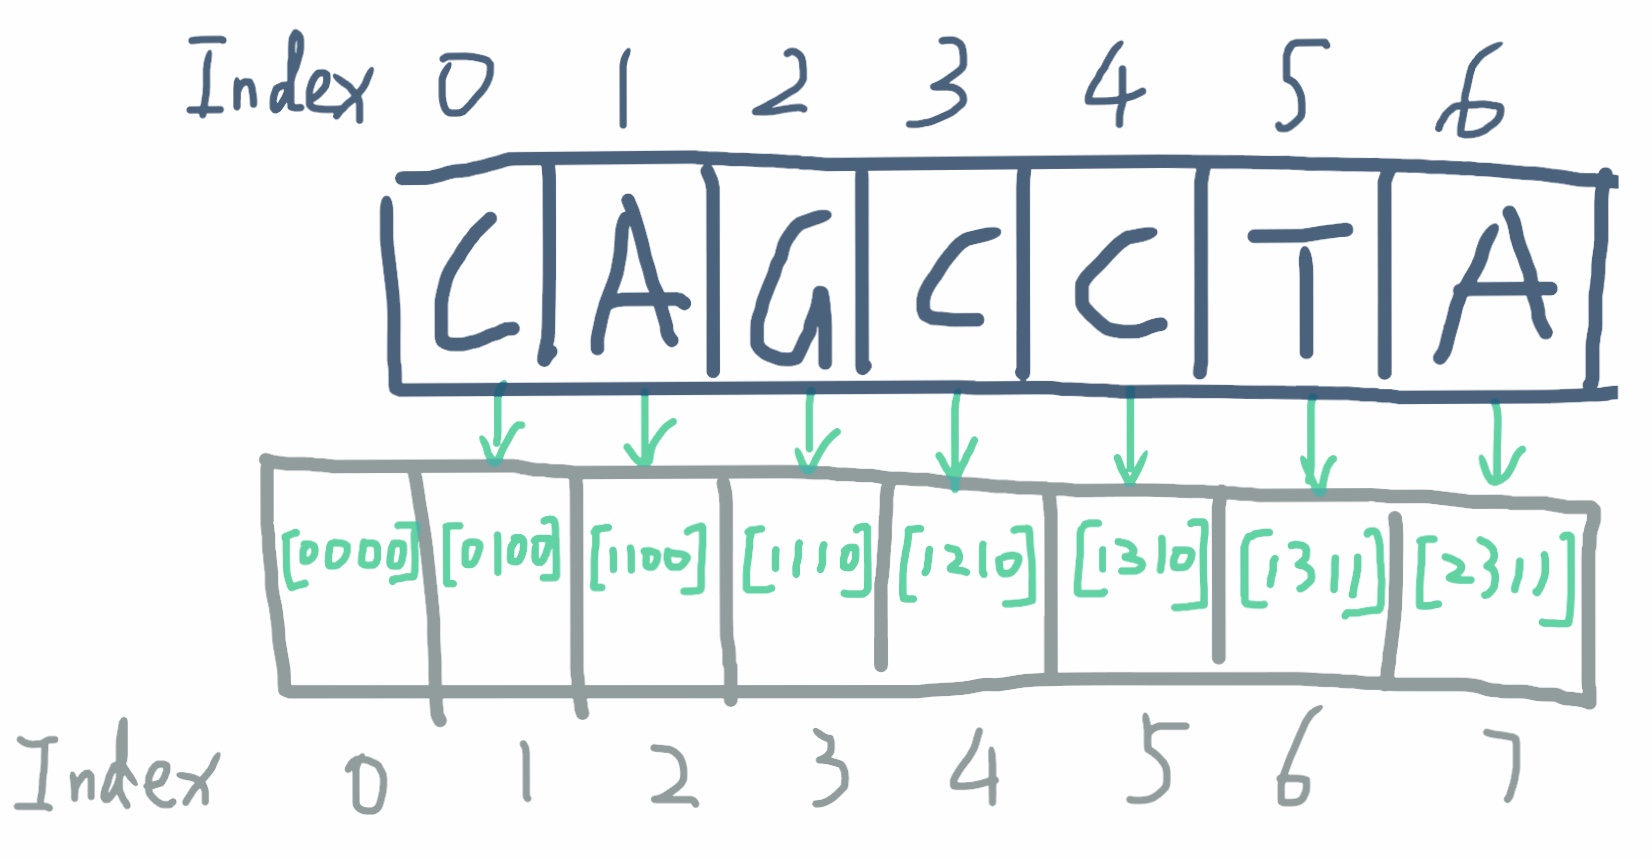 Index 0 1 2 3 4 5 6
C A G C C T A
[0000] [0100] [1100] [1110] [1210] [1310] [1311] [2311]
Index 0 1 2 3 4 5 6 7